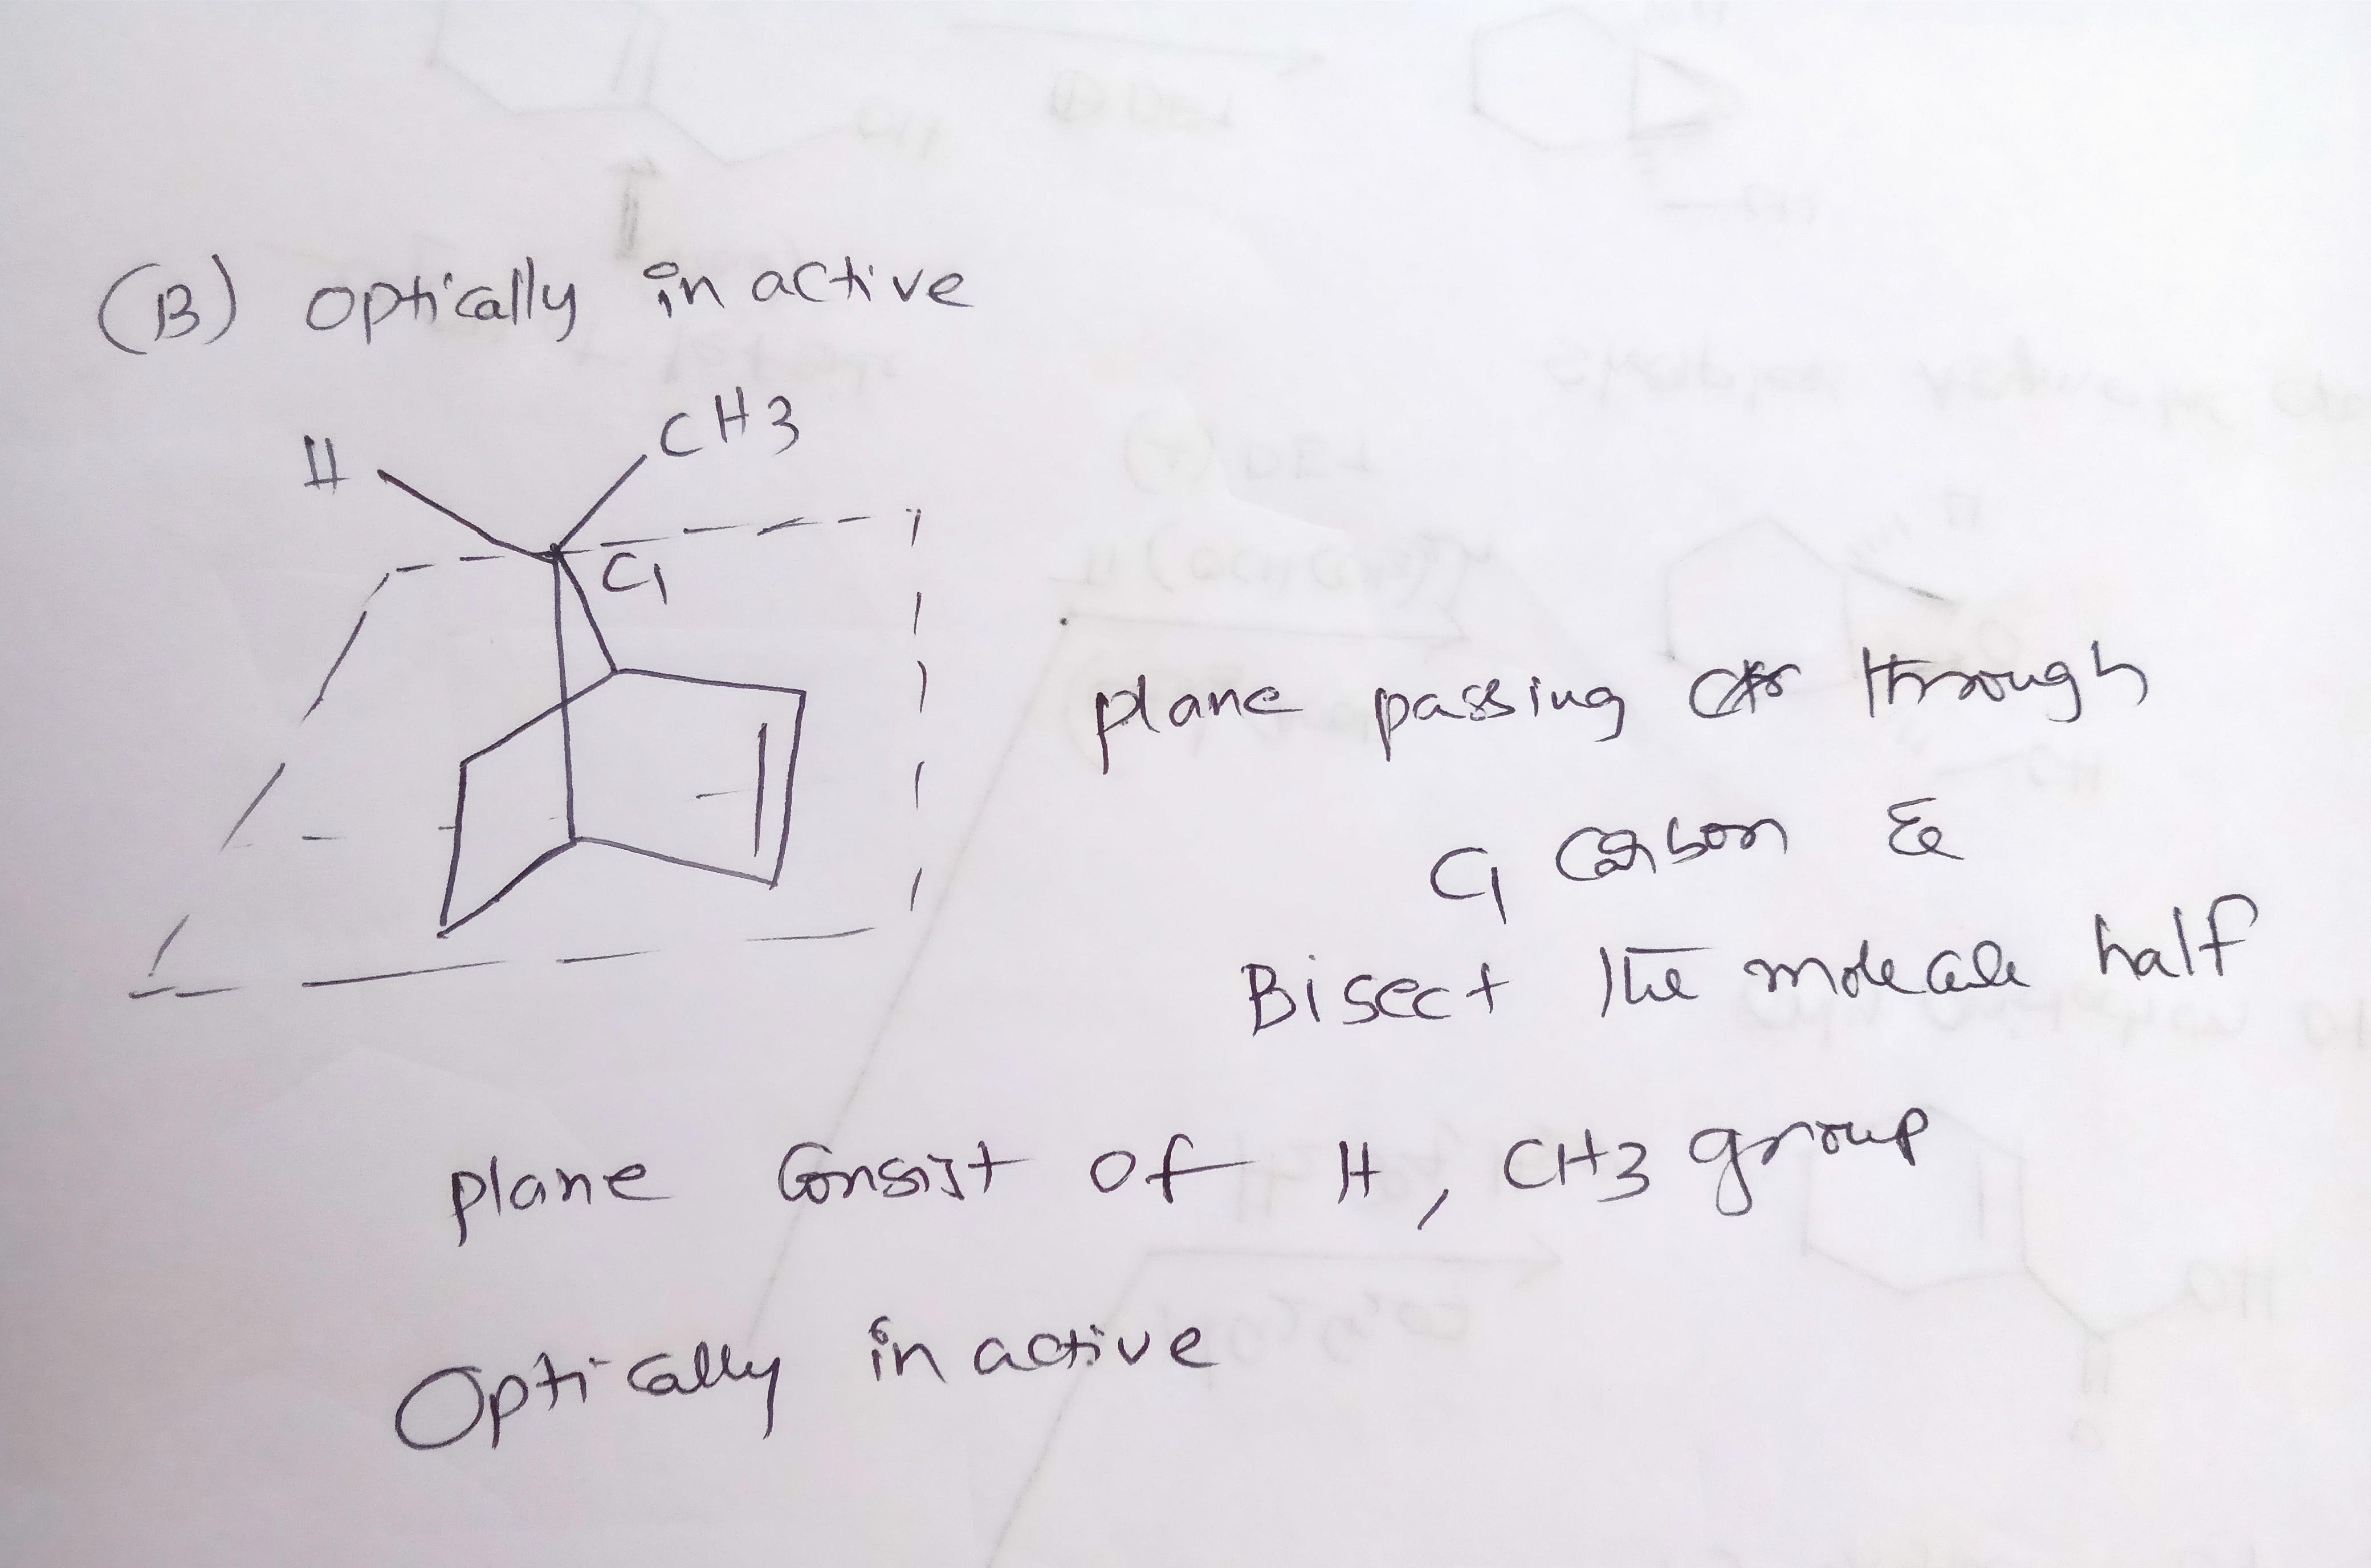 (B) optically in active
H
CH3
C1
plane passing through
C1 carbon &
Bisect the molecule half
plane consist of H, CH3 group
Optically in active